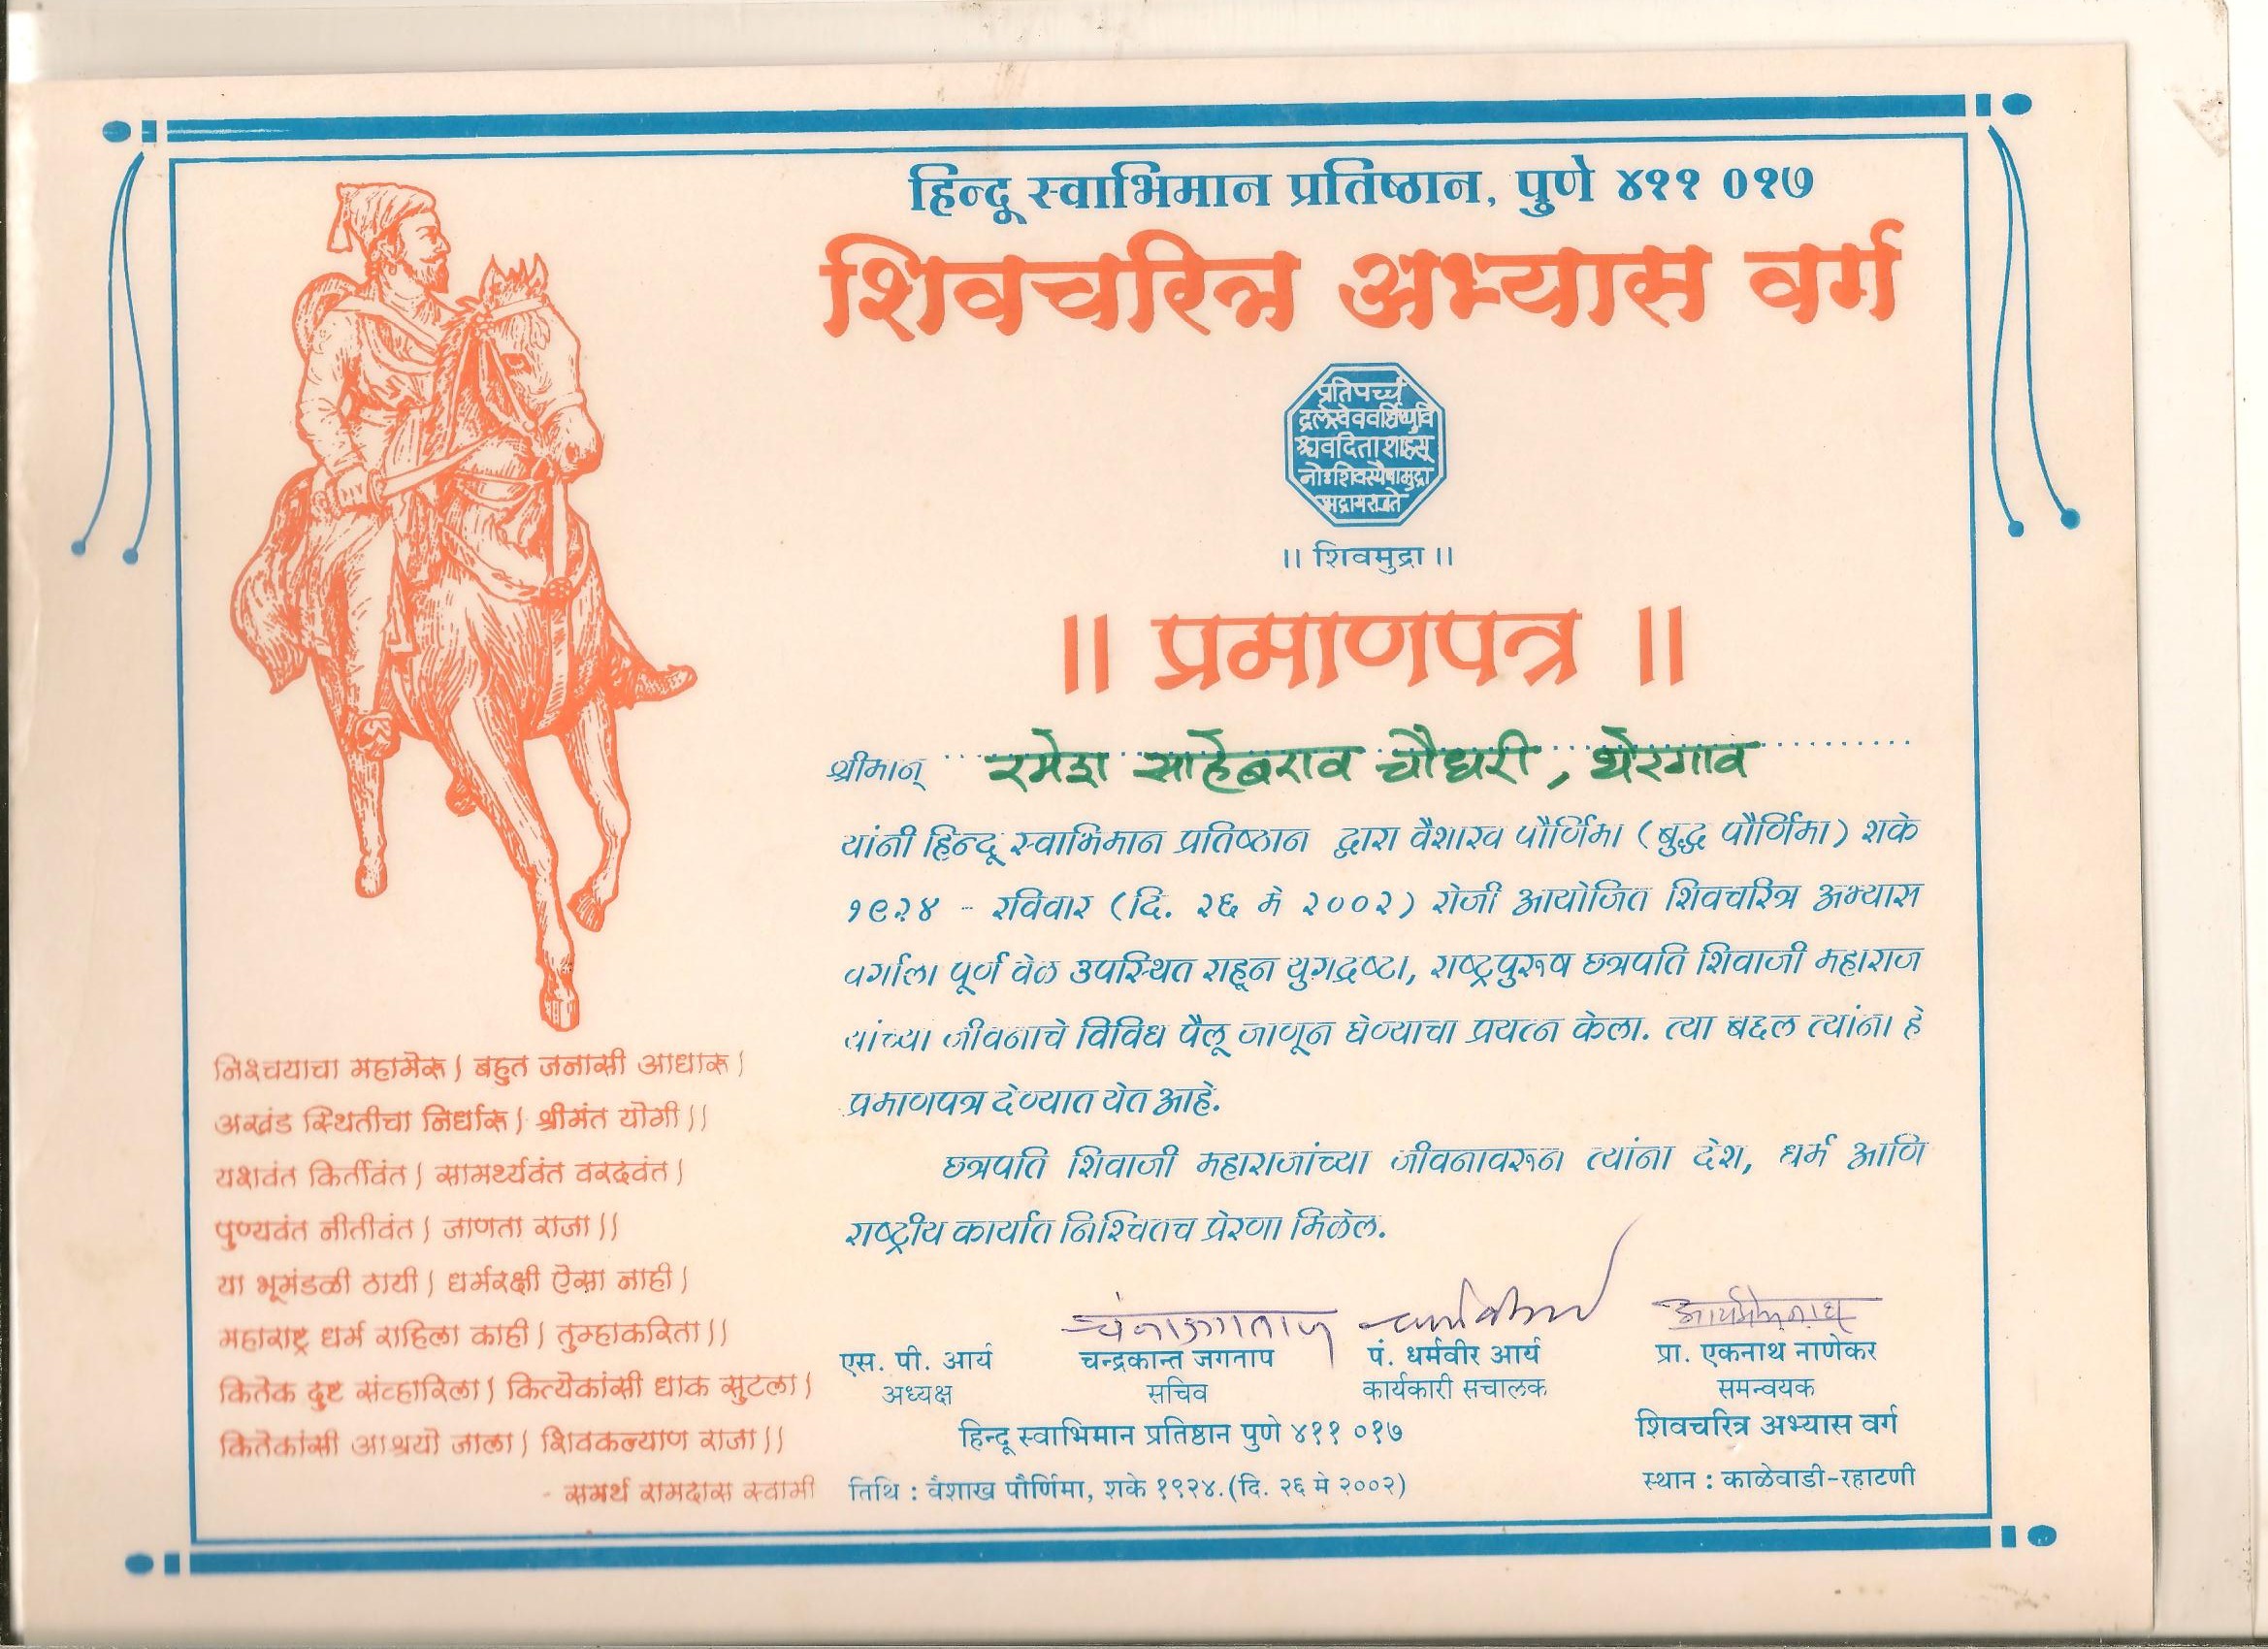 हिन्दू स्वाभिमान प्रतिष्ठान, पुणे ४११ ०१७
शिवचरित्र अभ्यास वर्ग
प्रतिपच्चं
द्रलेखेववर्धिष्णुर्वि
श्ववंदिताशाहसू
नोःशिवस्यैषामुद्रा
भद्रायराजते
॥ शिवमुद्रा ॥
॥ प्रमाणपत्र ॥
श्रीमान् रमेश साहेबराव चौधरी, थेरगाव
यांनी हिन्दू स्वाभिमान प्रतिष्ठान द्वारा वैशाख पौर्णिमा (बुद्ध पौर्णिमा) शके
१९२४ - रविवार (दि. २६ मे २००२) रोजी आयोजित शिवचरित्र अभ्यास
वर्गाला पूर्ण वेळ उपस्थित राहून युगद्रष्टा, राष्ट्रपुरूष छत्रपति शिवाजी महाराज
यांच्या जीवनाचे विविध पैलू जाणून घेण्याचा प्रयत्न केला. त्या बद्दल त्यांना हे
प्रमाणपत्र देण्यात येत आहे.
छत्रपति शिवाजी महाराजांच्या जीवनावरून त्यांना देश, धर्म आणि
राष्ट्रीय कार्यात निश्चितच प्रेरणा मिळेल.
निश्चयाचा महामेरू। बहुत जनासी आधारू।
अखंड स्थितीचा निर्धारू। श्रीमंत योगी॥
यशवंत किर्तीवंत। सामर्थ्यवंत वरदवंत।
पुण्यवंत नीतीवंत। जाणता राजा॥
या भूमंडळी ठायी। धर्मरक्षी ऐसा नाही।
महाराष्ट्र धर्म राहिला काही। तुम्हाकरिता॥
कितेक दुष्ट संव्हारिला। कित्येकांसी धाक सुटला।
कितेकांसी आश्रयो जाला। शिवकल्याण राजा॥
- समर्थ रामदास स्वामी
एस. पी. आर्य
अध्यक्ष
चन्द्रकान्त जगताप
सचिव
पं. धर्मवीर आर्य
कार्यकारी सचालक
प्रा. एकनाथ नाणेकर
समन्वयक
हिन्दू स्वाभिमान प्रतिष्ठान पुणे ४११ ०१७
शिवचरित्र अभ्यास वर्ग
तिथि : वैशाख पौर्णिमा, शके १९२४.(दि. २६ मे २००२)
स्थान : काळेवाडी-रहाटणी